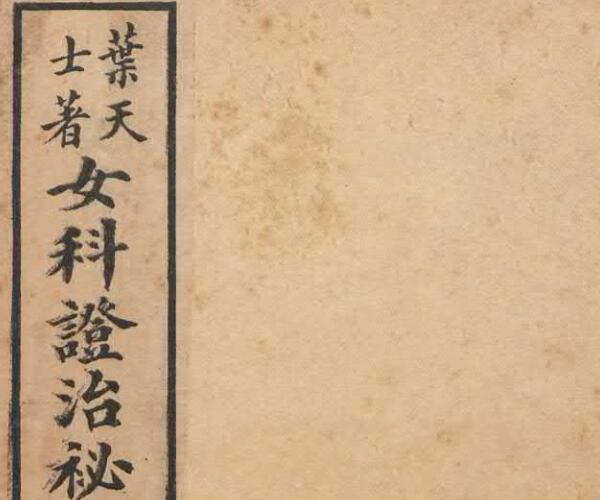 葉天
士著
女科證治秘